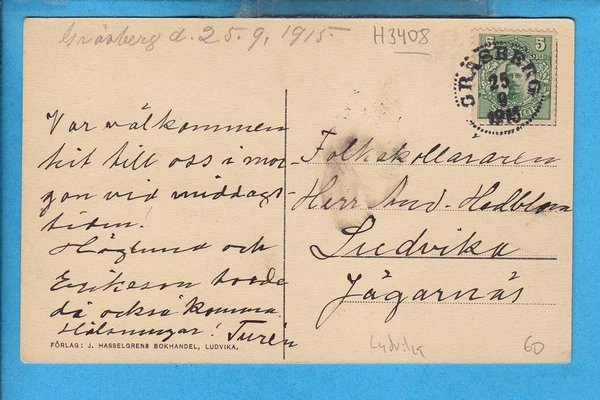 Gräsberg d. 25.9.1915.
H3408
5
GRÄSBERG
25
9
1915
Var välkommen
hit till oss i mor-
gon vid middags-
tiden.
Höglund och
Erikson torde
då också komma.
Hälsningar! Turén
Folkskolläraren
Herr And. Hedblom
Ludvika
Jägarnäs
FÖRLAG: J. HASSELGRENS BOKHANDEL, LUDVIKA.
Ludvika
60